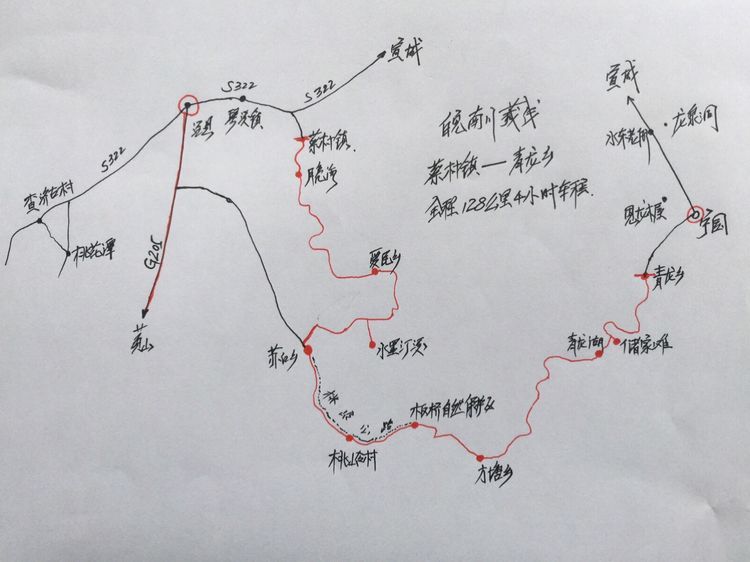 宣城
S322
S322
泾县
琴溪镇
S322
蔡村镇
月亮湾
查济古村
桃花潭
G205
黄山
皖南川藏线
蔡村镇——青龙乡
全程128公里4小时车程.
宣城
龙泉洞
水东老街
恩龙木屋
宁国
青龙乡
爱民乡
水墨汀溪
苏红乡
青龙湖
储家滩
公路
板桥自然保护区
桃岭村
方塘乡